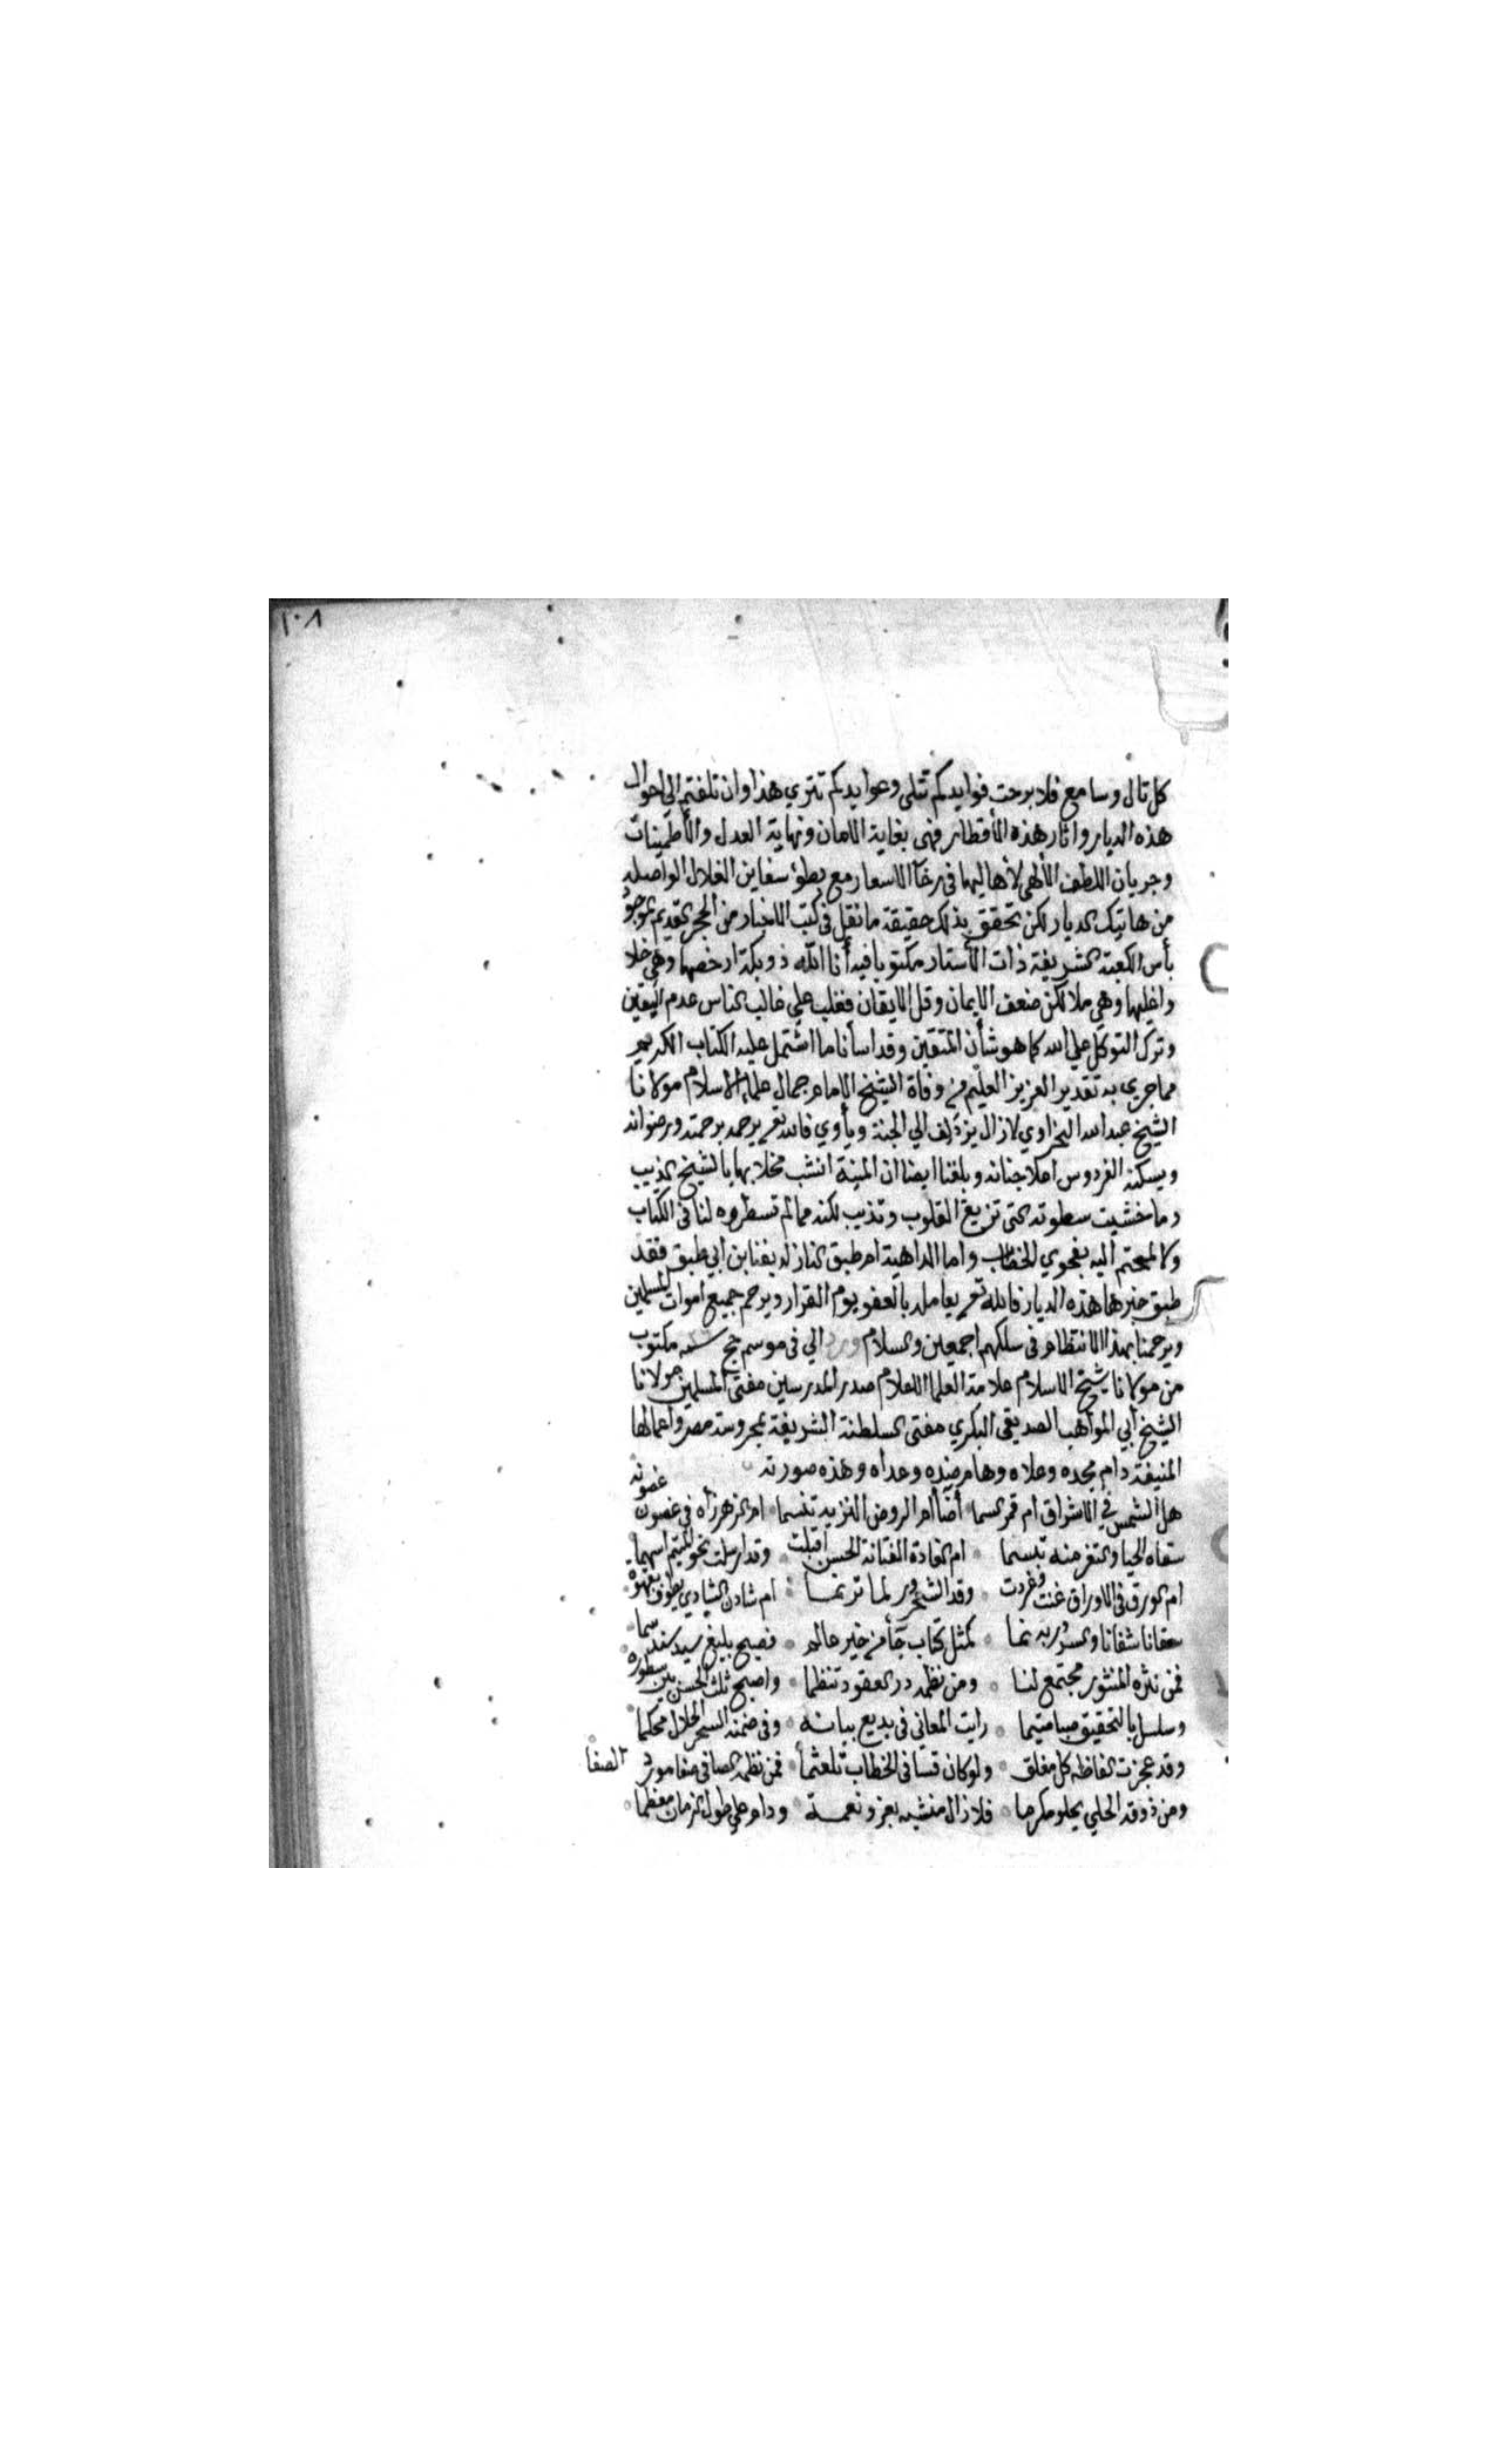 ١٠٨
كل تال وسامع فلا برحت فوايدكم تتلى وعوايدكم تتري هذا وان تلفتم الى احوال
هذه الديار واثار هذه الأقطار فهي بغاية الامان ونهاية العدل والأطمينات
وجريان اللطف الألهي لأهاليها في رخآ الاسعار مع بطؤ سفاين الغلال الواصله
من هاتيك الديار لكن تحقق بذلك حقيقة ما نقل في كتب الاخبار من الحجر القديم الموجود
بأس الكعبة الشريفة ذات الأستار مكتوبا فيه أنا الله ذو بكة ارخصها وهي خلا
واغليها وهي ملا لكن ضعف الايمان وقل الايقان فغلب علي غالب الناس عدم اليقين
وترك التوكل علي الله كما هو شأن المتقين وقد اسأنا ما اشتمل عليه الكتاب الكريم
مما جري به تقدير العزيز العليم من وفاة الشيخ الامام جمال علماء الاسلام مولانا
الشيخ عبد الله النحراوي لازال يزدلف الي الجنة ويأوي فالله تعـ يرحمه برحمته ورضوانه
ويسكنه الفردوس اعلا جنانه وبلغنا ايضا ان المنية انشب مخلابهايا لشيخ الذيب
وما خشيت سطوته التى تزيغ القلوب وتذيب لكنه مما لم تسطروه لنا في الكتاب
وكالمحتم اليه بفحوي الخطاب واما الداهية ام طبق النازله بفنا بن ابي طبق فقد
طبق خبرها هذه الديار فالله تعـ يعامله بالعفو يوم القرار ويرحم جميع اموات المسلمين
ويرحمنا بهذا الانتظام في سلكهم اجمعين والسلام ورد الي في موسم حج سنه مكتوب
من مولانا شيخ الاسلام علامة العلما الاعلام صدر المدرسين مفتى المسلمين مولانا
الشيخ أبي المواهب الصديقى البكري مفتى السلطنة الشريفة بمحروسة مصر واعمالها
المنيفة دام مجده وعلاه وهام ضده وعداه وهذه صورته
هل الشمس في الاشراق ام قمر السما أضا أم الروض النزيه تنسما ام الزهر زاه في غصون غصونه
سقاه الحيا والثغر منه تبسما ام الغادة الفتانة الحسن اقبلت وقد ارسلت نحو المتيم اسهما
ام الورق في الاوراق غنت وغردت وقد الشحرور لما ترنما ام شادن الشادي يطوف بقهوة
سقانا شفانا والسرور به نما كمثل كتاب جآ من خير عالم فصيح بليغ سيد سما
فمن نثره المنثور مجتمع لنا ومن نظمه در العقود تنظما واصبح ثلث الحسن بين سطوره
وسلسل بالتحقيق صبا متيما رايت المعاني في بديع بيانه وفى ضمنه السحر الحلال محكما
وقد عجزت الفاظه كل مفلق ولو كان قسا في الخطاب تلعثما فمن نظمه الصافي صفا مورد الصفا
ومن ذوقه الحلي يحلو مكرما فلازال منشيه بعز ونعمة ودام علي طول الزمان معظما